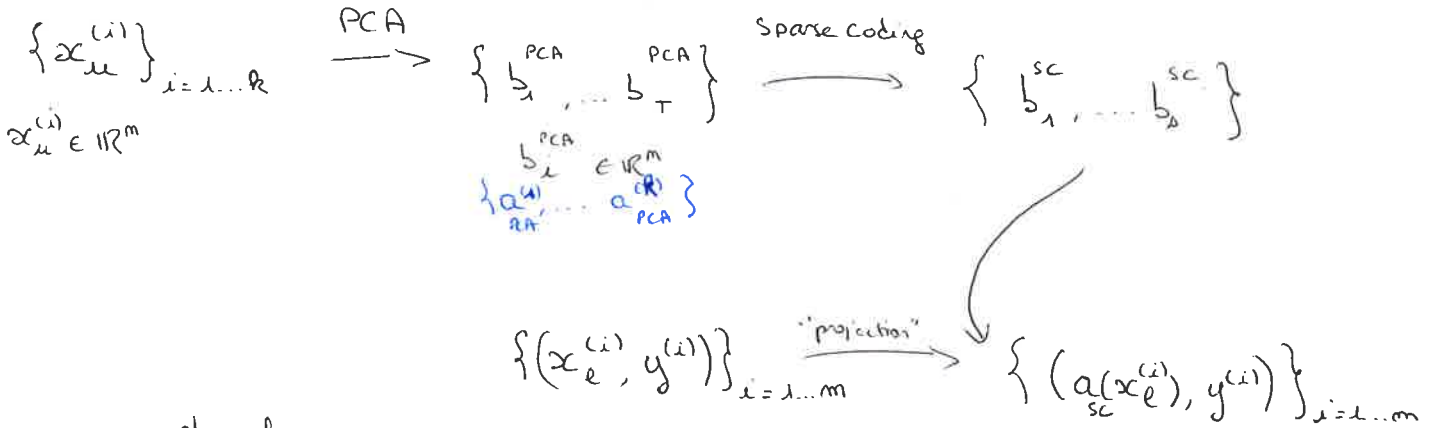 {x_u^(i)}_{i=1...k} PCA → {b_1^PCA, ... b_T^PCA} sparse coding → {b_1^SC, ... b_s^SC}
x_u^(i) ∈ ℝ^m
b_i^PCA ∈ ℝ^m
{a_PCA^(1), ... a_PCA^(k)}
{(x_l^(i), y^(i))}_{i=1...m} "projection" → {(a_SC(x_l^(i)), y^(i))}_{i=1...m}